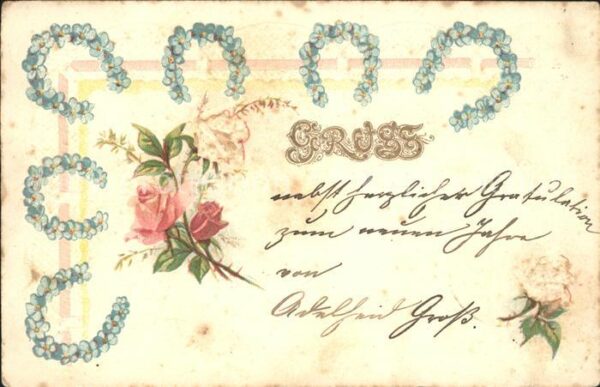 GRUSS
nebst herzlicher Gratulation
zum neuen Jahre
von
Adelheid Groß.